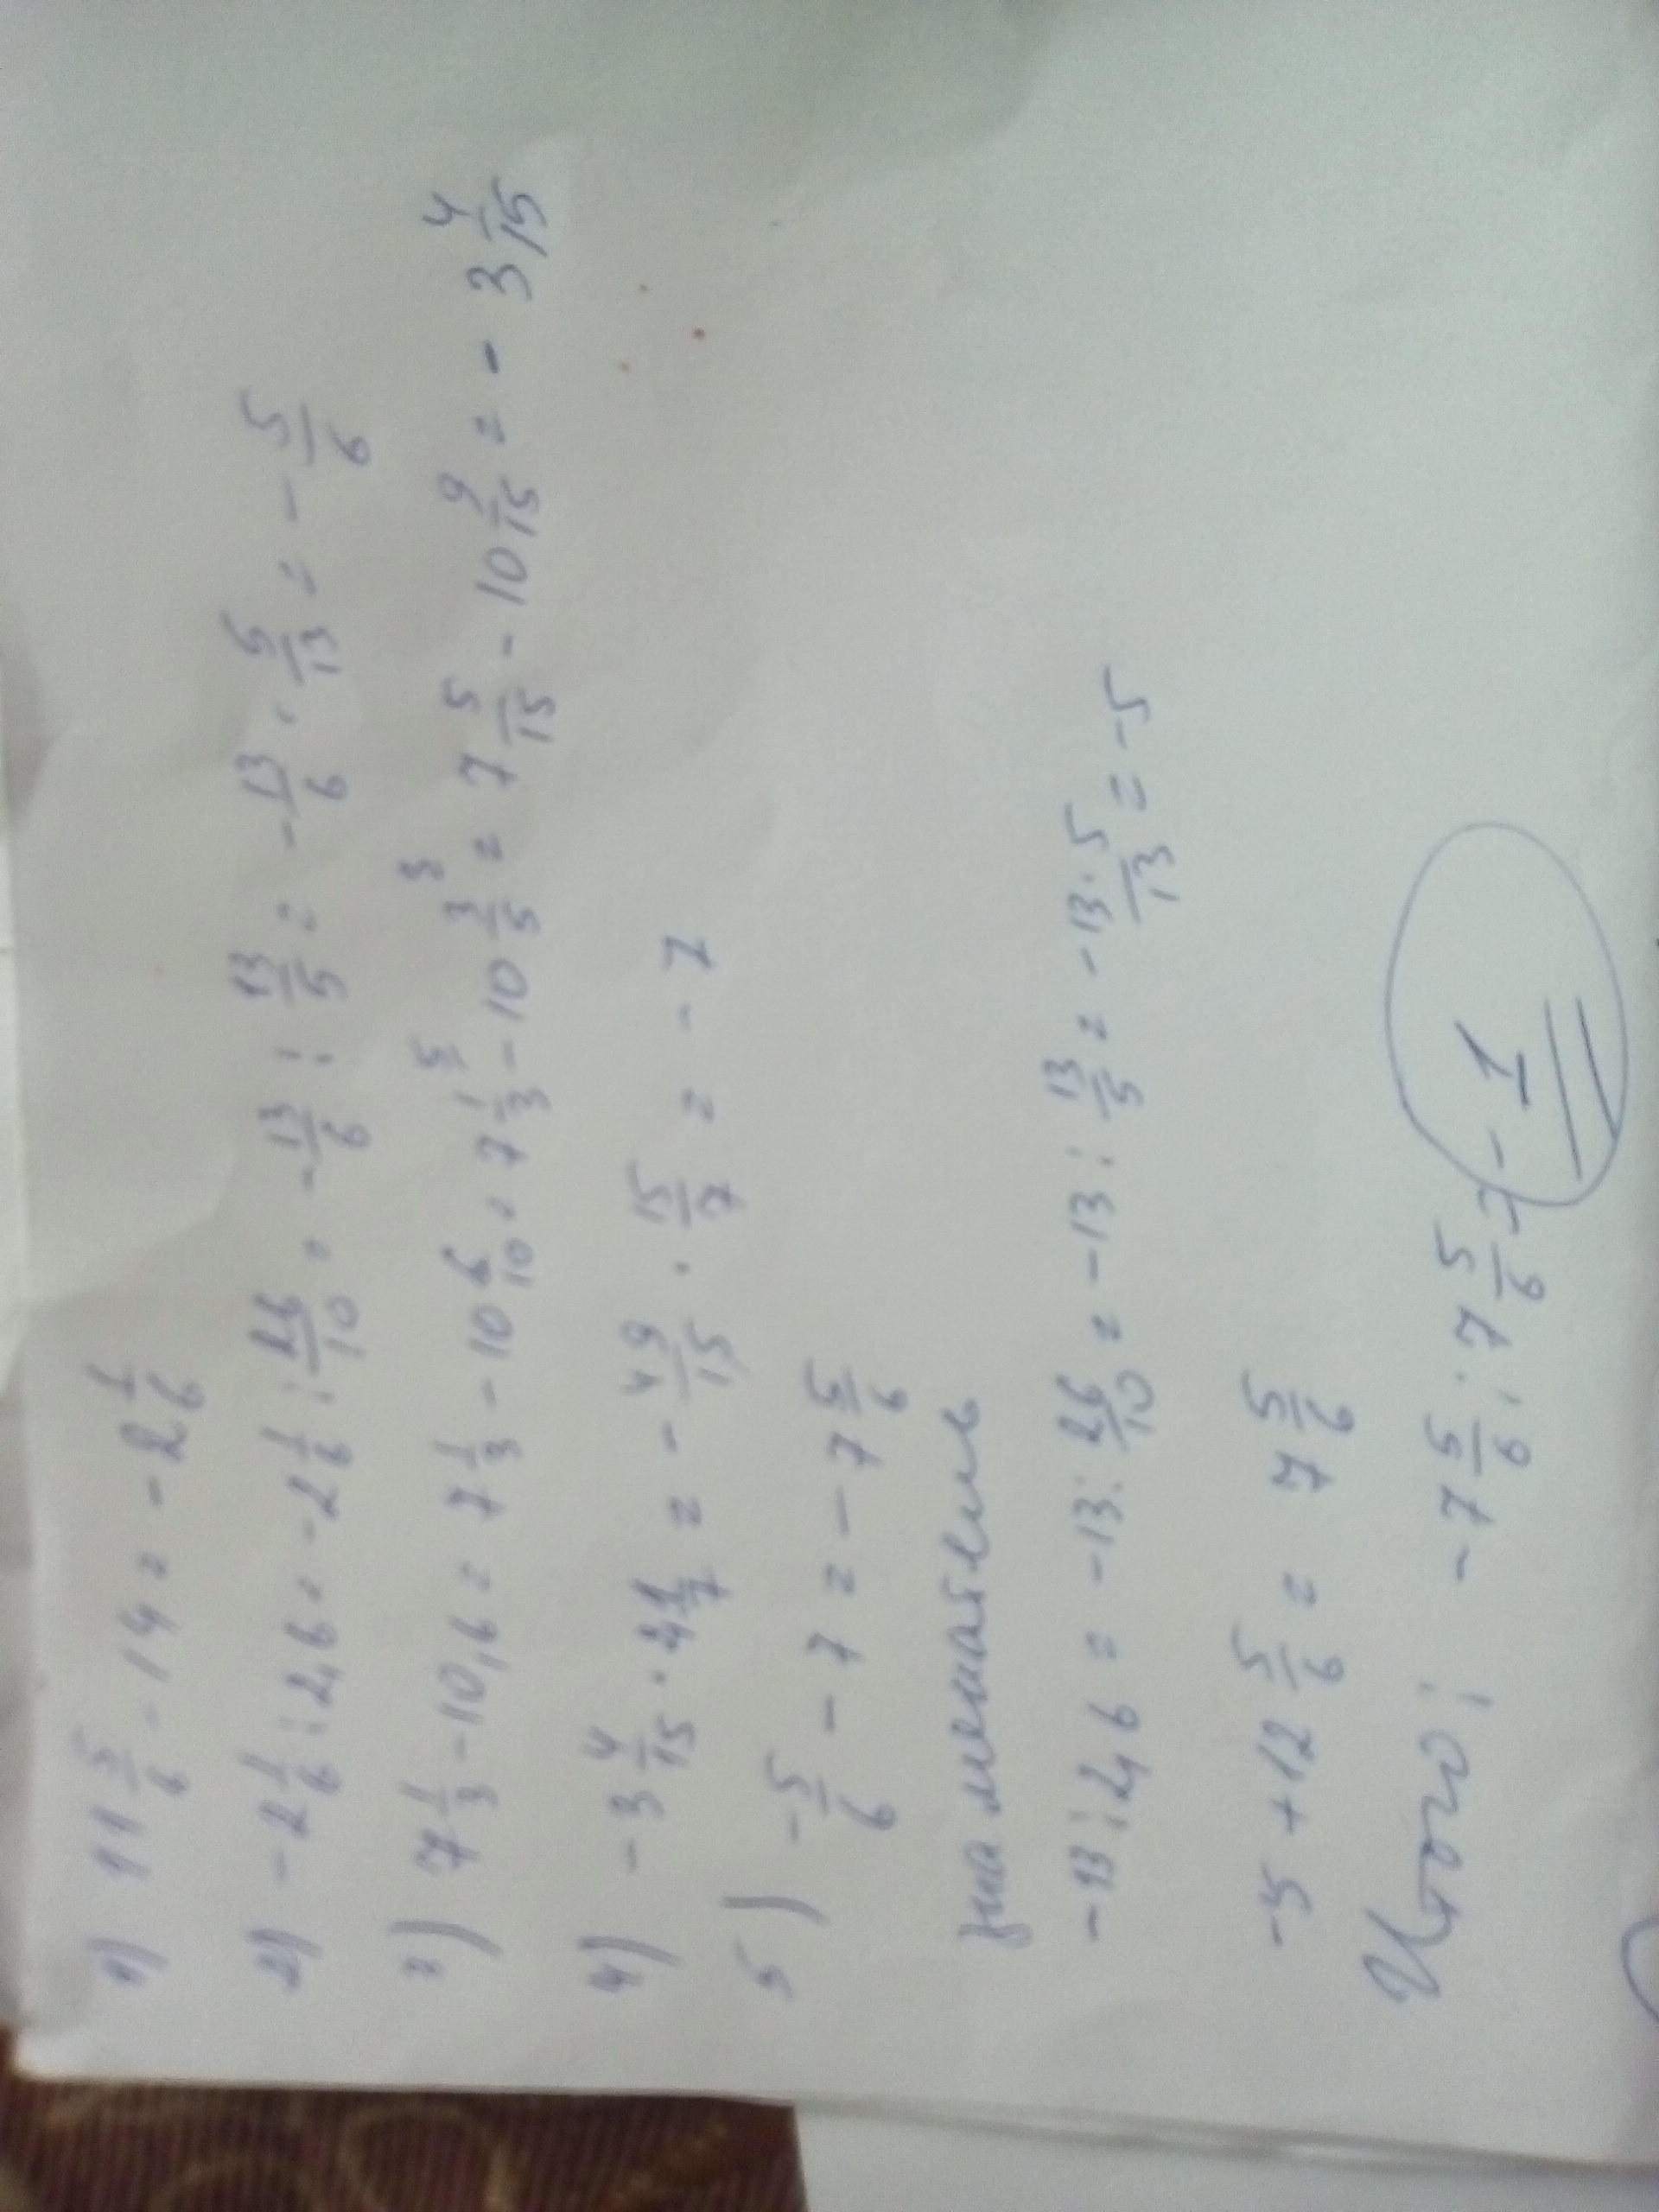 1) 11 5/6 - 14 = - 2 1/6
2) - 2 1/6 : 2,6 = - 2 1/6 : 26/10 = - 13/6 : 13/5 = - 13/6 · 5/13 = - 5/6
3) 7 1/3 - 10,6 = 7 1/3 - 10 6/10 = 7 1/3 5 - 10 3/5 3 = 7 5/15 - 10 9/15 = - 3 4/15
4) - 3 4/15 · 1/7 = - 49/15 · 15/7 = - 7
5) - 5/6 - 7 = - 7 5/6
знаменатель
- 13 : 2,6 = - 13 : 26/10 = - 13 : 13/5 = - 13 · 5/13 = - 5
- 5 + 12 5/6 = 7 5/6
Итого : - 7 5/6 : 7 5/6 = - 1